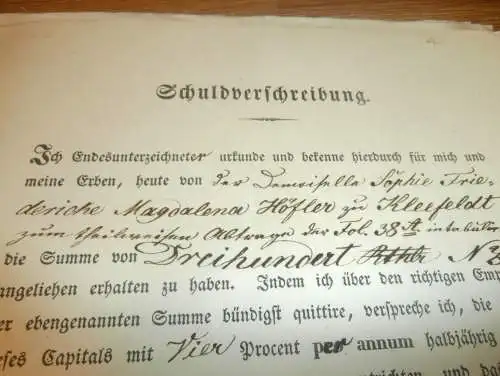 Schuldverschreibung.
Ich Endesunterzeichneter urkunde und bekenne hierdurch für mich und
meine Erben, heute von der Demoiselle Sophie Frie-
deriche Magdalena Höfler zu Kleefeldt
zum theilweisen Abtrage der Fol. 38
die Summe von Dreihundert Rthlr N
angeliehen erhalten zu haben. Indem ich über den richtigen Em
er ebengenannten Summe bündigst quittire, verspreche ich, die
eses Capitals mit Vier Procent per annum halbjährig